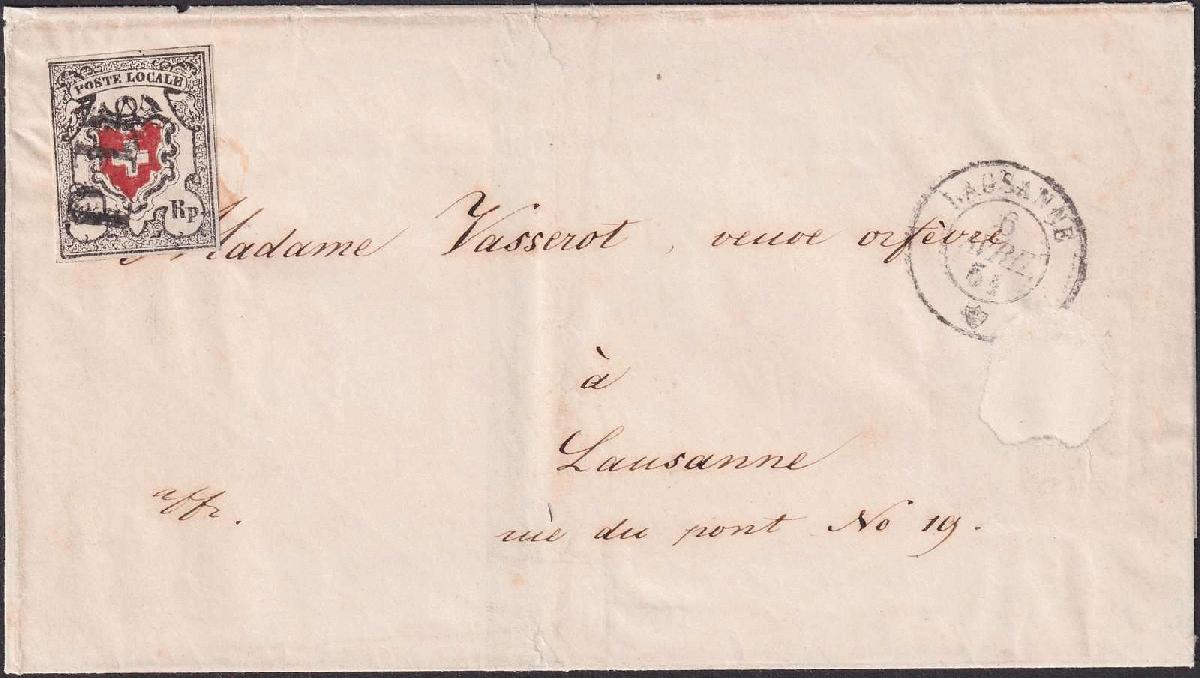 POSTE LOCALE
P.P.
Rp
LAUSANNE
6
BRE
51
Madame Vasserot, veuve orfèvre
à
Lausanne
affr.
rue du pont No 19.